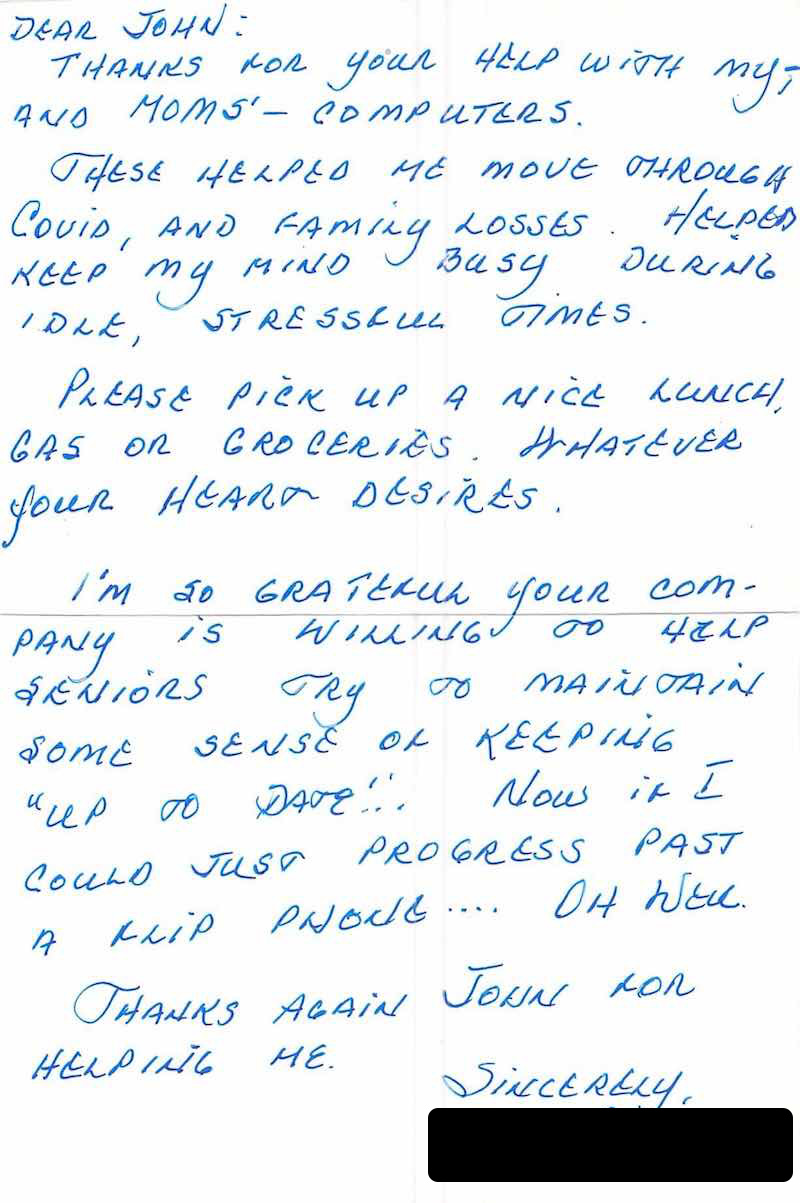 DEAR JOHN:
THANKS FOR YOUR HELP WITH MY,-
AND MOMS'- COMPUTERS.
THESE HELPED ME MOVE THROUGH
COVID, AND FAMILY LOSSES. HELPED
KEEP MY MIND BUSY DURING
IDLE, STRESSFUL TIMES.
PLEASE PICK UP A NICE LUNCH,
GAS OR GROCERIES. WHATEVER
YOUR HEART DESIRES.
I'M SO GRATEFUL YOUR COM-
PANY IS WILLING TO HELP
SENIORS TRY TO MAINTAIN
SOME SENSE OF KEEPING
"UP TO DATE"!.. NOW IF I
COULD JUST PROGRESS PAST
A FLIP PHONE.... OH WELL.
THANKS AGAIN JOHN FOR
HELPING ME.
SINCERELY,